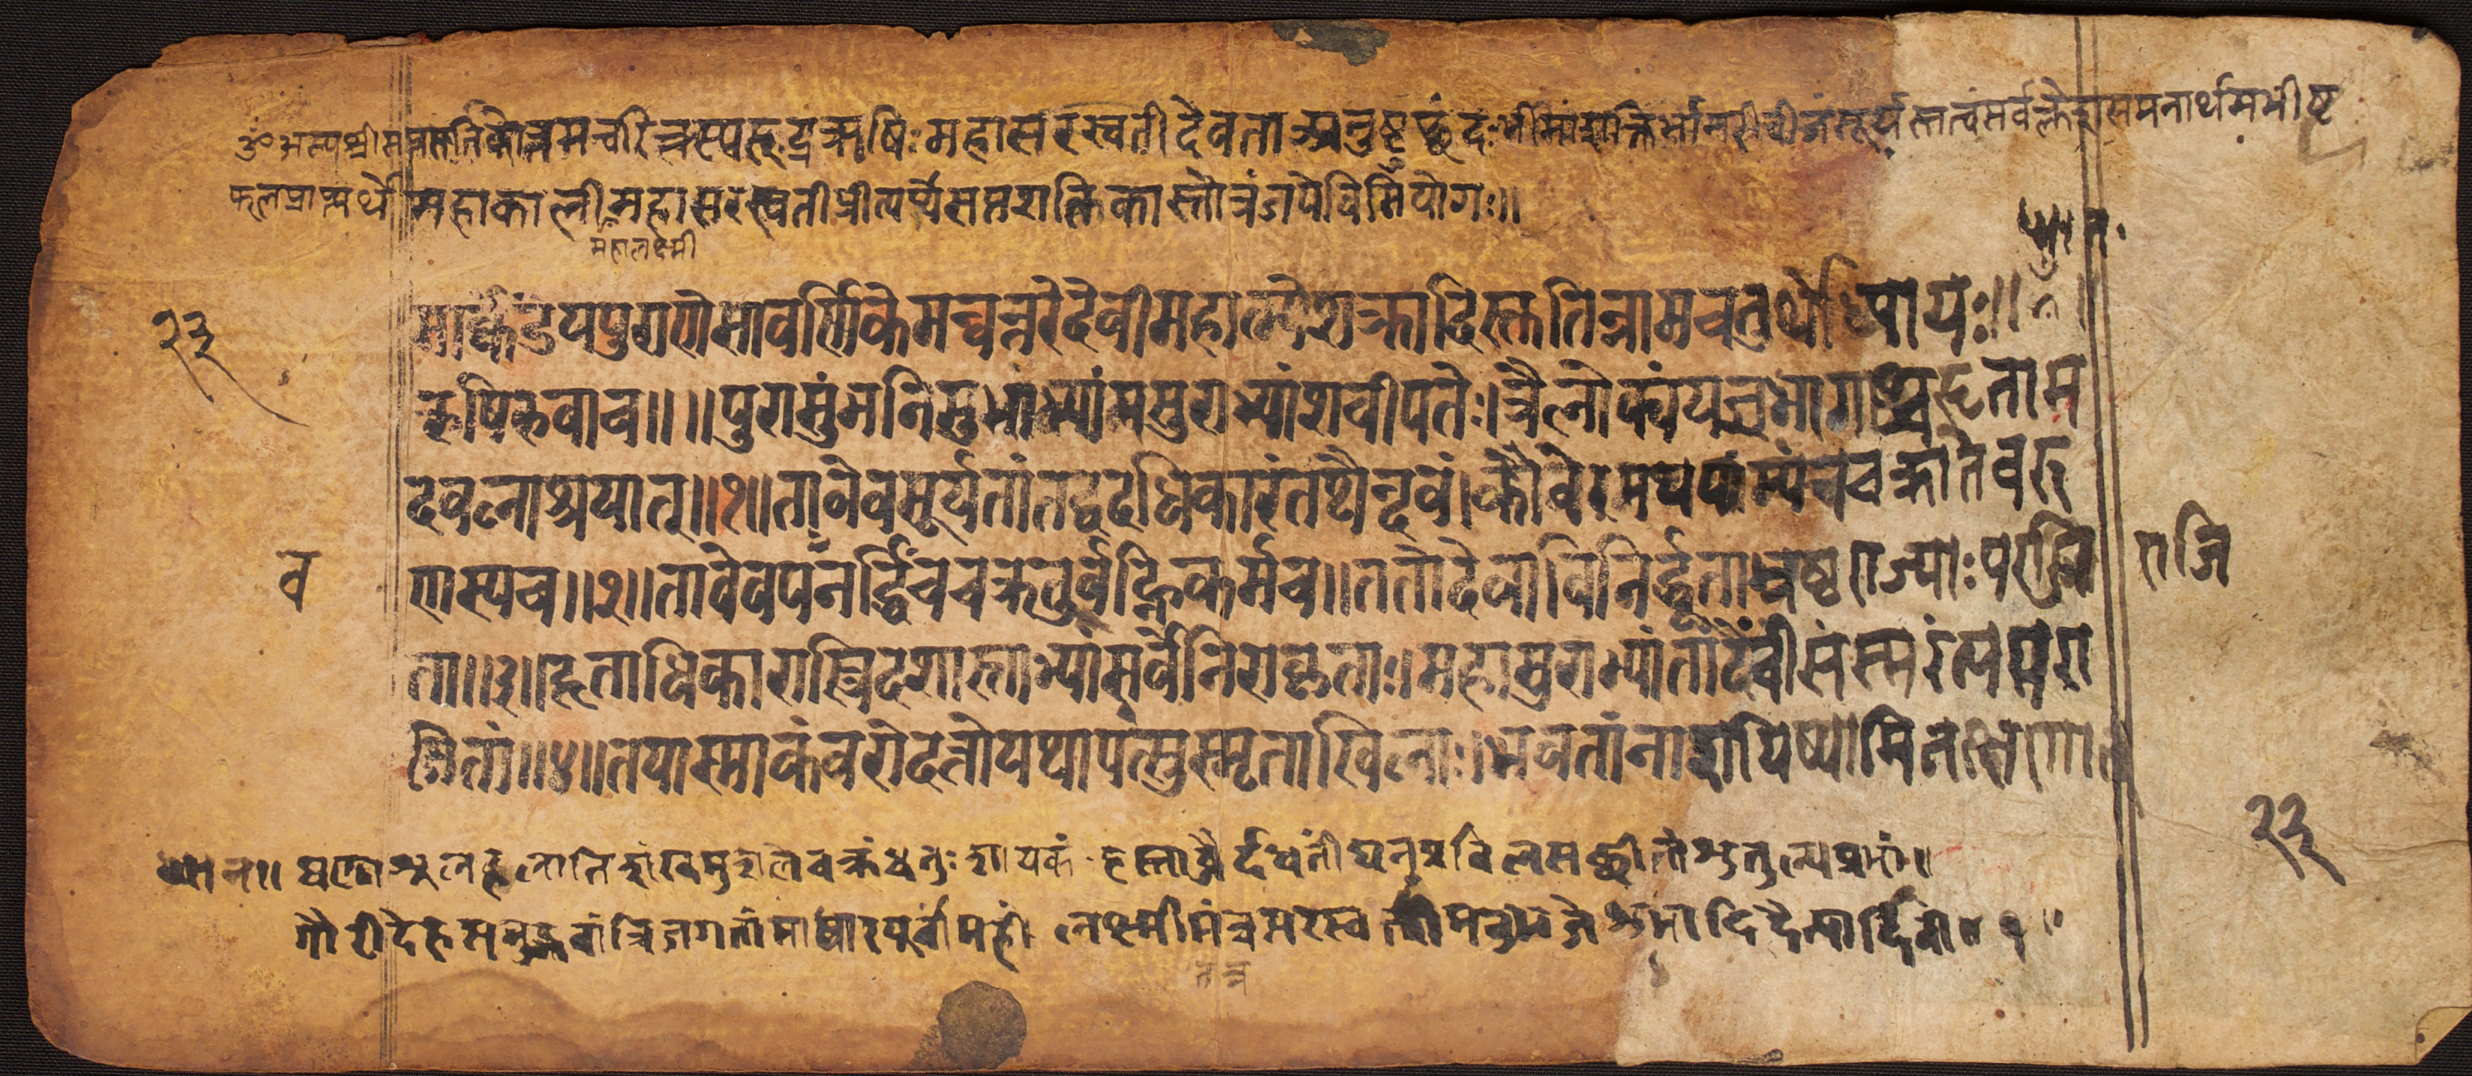 ॐ अस्य श्री सप्तसतिकोत्तमचरित्रस्य रुद्र ऋषिः महासरस्वती देवता अनुष्टुप्छंदः भीमांशक्तिः भ्रामरीवीजंसूर्य्यस्तत्वंसर्व समनार्थमभीष्ट
फलप्राप्त्यर्थे महाकाली महासरस्वतीप्रीत्यर्थ्ये सप्तशक्तिकास्तोत्रंजपे विनियोगः॥
महालक्ष्मी
२३
मार्क्कंडेयपुराणेसावर्णिकेमन्वन्तरेदेवीमहात्म्येशक्रादिस्तुतिर्न्नामचतुर्थोध्यायः॥
ऋषिरुवाच॥॥पुराशुंभनिसुंभाभ्यांमसुराभ्यांशचीपतेः।त्रैलोक्यंयज्ञभागाश्चहृताम
दवलाअयात्॥१॥तावेवसूर्यतांतद्वदधिकारंतथैन्दवं।कौवेरमथयाम्यंचचक्रातेवरु
व
णस्यच॥२॥तावेवपवनर्द्धिंचचक्रतुर्वह्निकर्मच॥ततोदेवाविनिर्द्धूताभ्रष्टराज्याःपराजि
राजि
ता॥३॥हृताधिकारास्त्रिदशास्ताभ्यांसर्वेनिराकृताः।महासुराभ्यांतांदेवींसंस्मरंत्यपरा
जितां॥४॥तयास्माकंवरोदत्तोयथापत्सुस्मृताखिलाः।भवतांनाशयिष्यामितत्क्षणात्
२३
ध्यानं॥ घण्टाशूलहलानिशंखमुशलेचक्रंधनुःशायकं हस्ताब्जैर्दधतींघनान्तविलसच्छीतांशुतुल्यप्रभां॥
गौरीदेहसमुद्भवांत्रिजगतामाधारपूर्वांमहां लक्ष्मीमंत्रसरस्वतीमनुभजेशुंभादिदैत्यार्दिनीं॥१॥